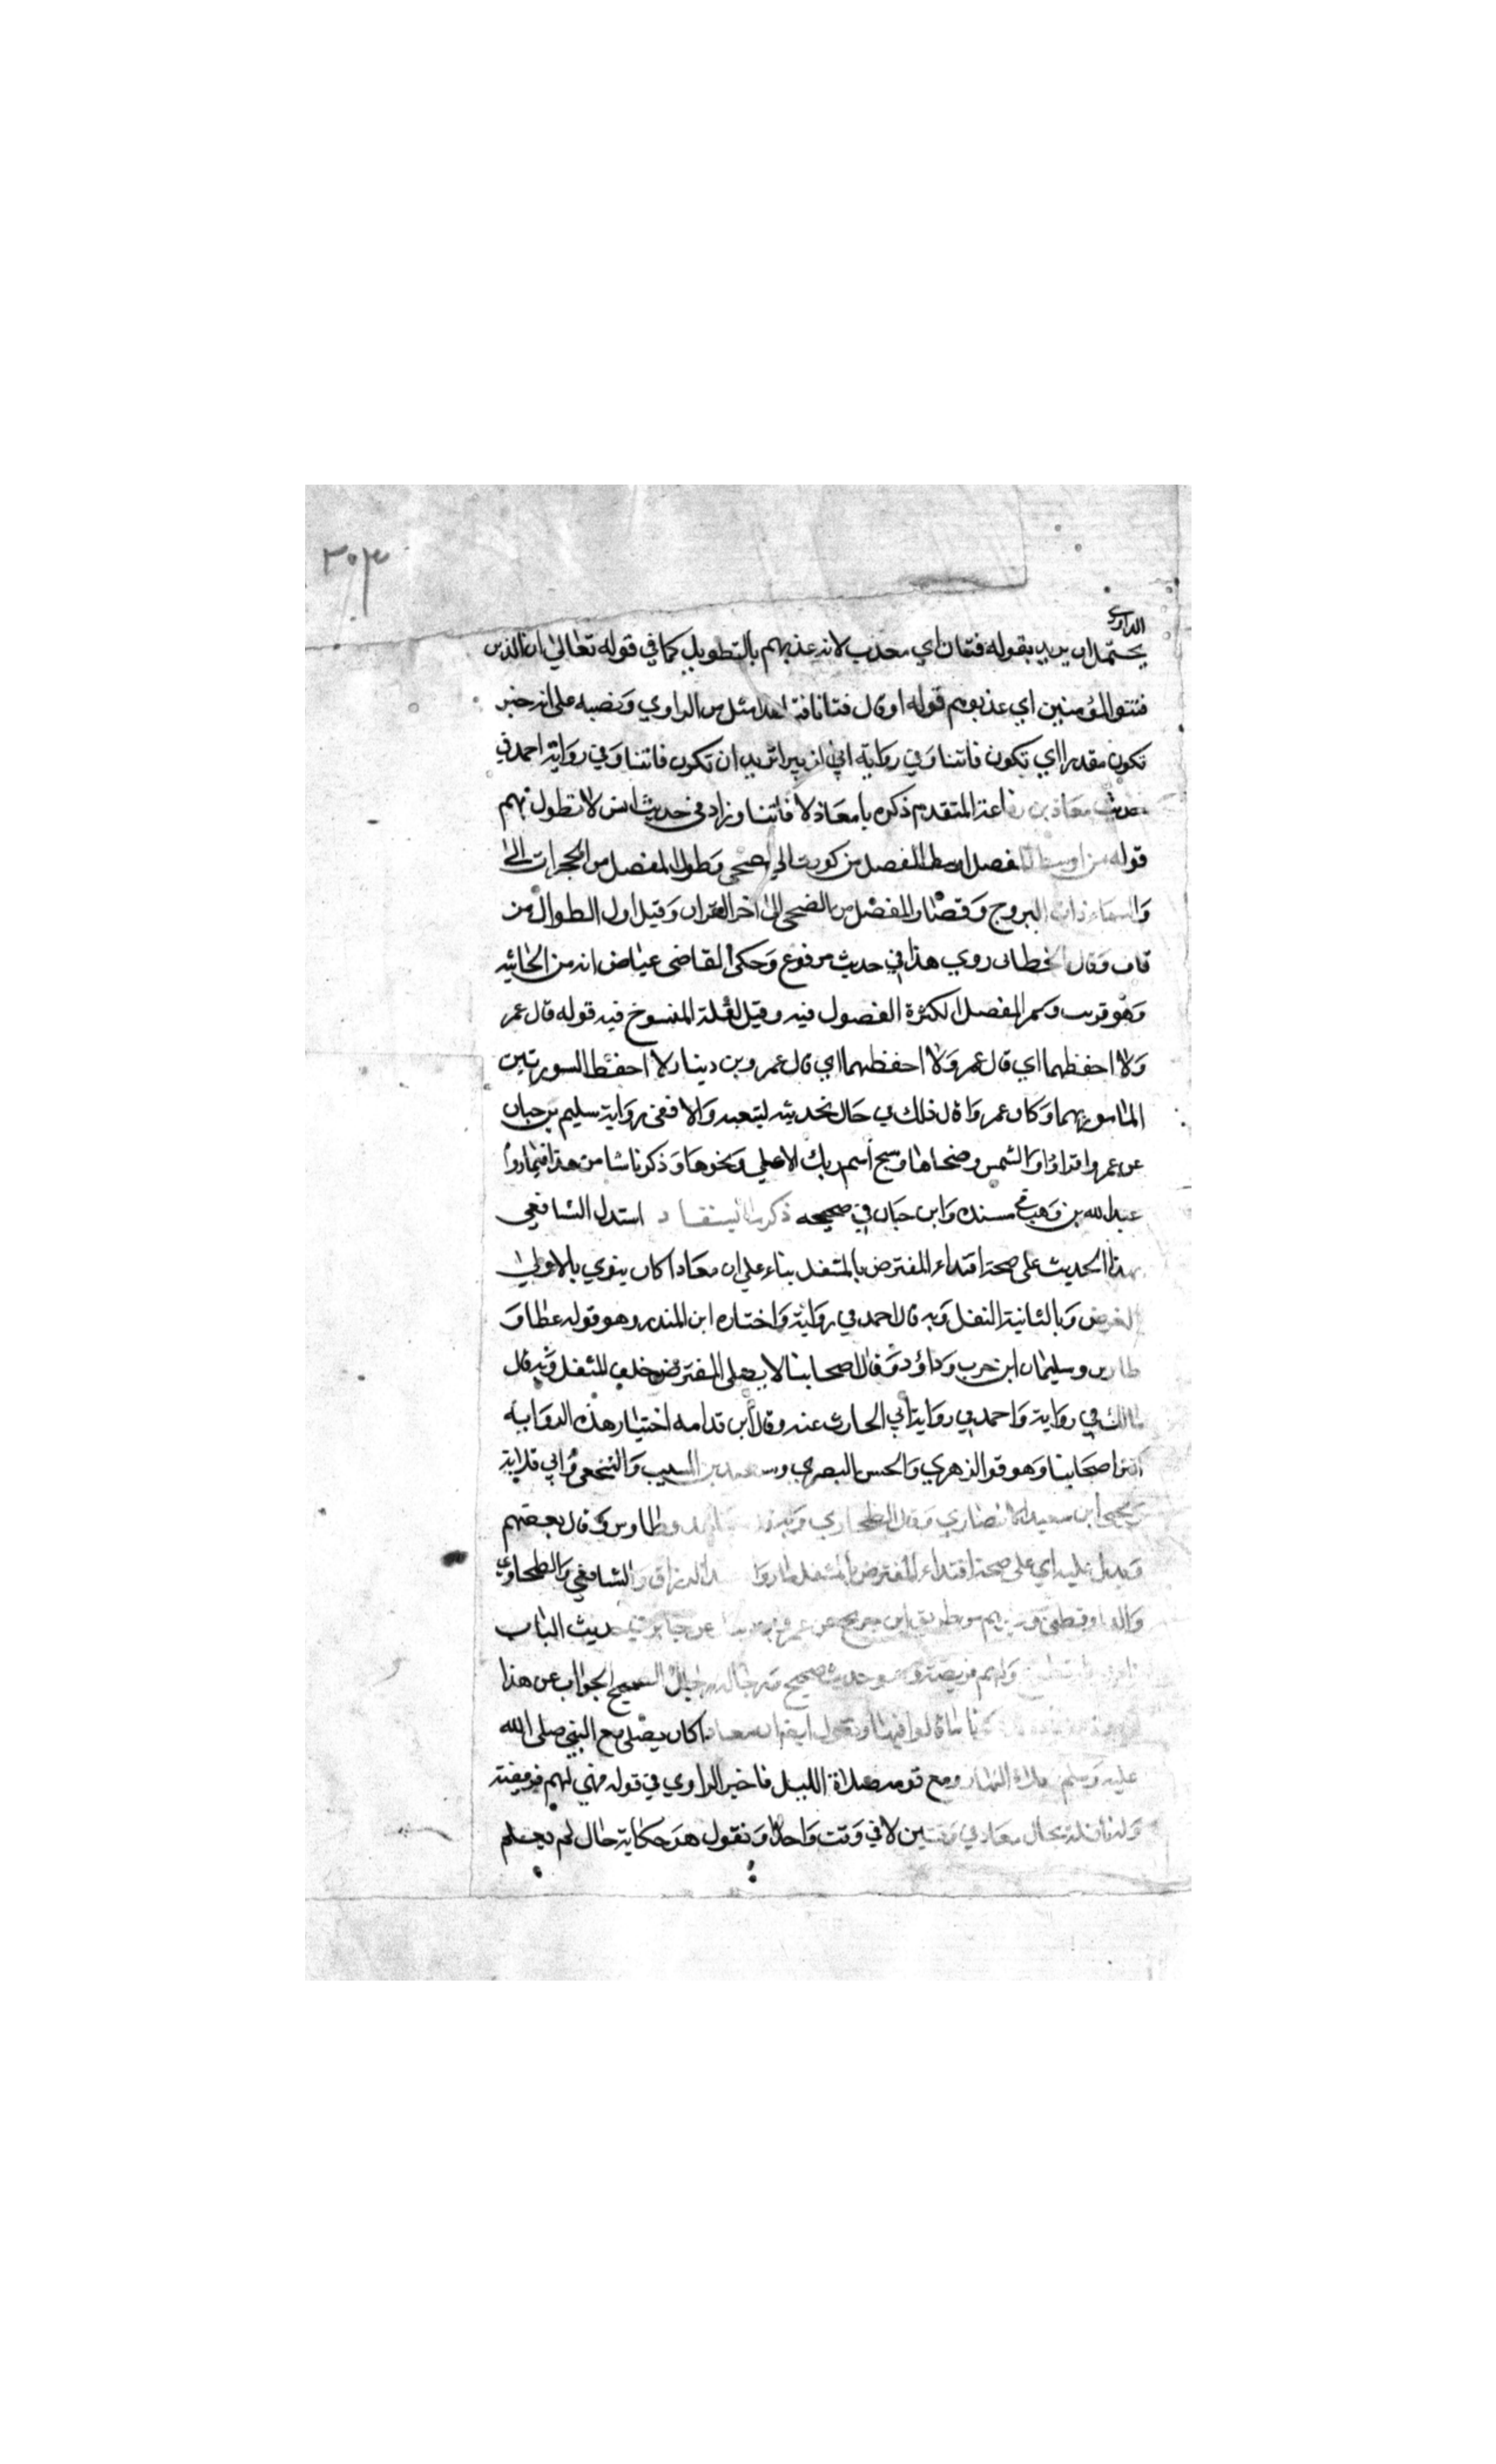 ٣٠٣
الداودي
يحتمل ان يريد بقوله فتان اي معذب لانه عذبهم بالتطويل كما في قوله تعالى ان الذين
فتنوا المؤمنين اي عذبوهم قوله او قال فتانا فاتنا من الراوي ونصبه على انه خبر
تكون مقدرا اي تكون فاتنا وفي رواية ابي الزبير اتريد ان تكون فاتنا وفي رواية احمد في
حديث معاذ بن رفاعة المتقدم ذكره يا معاذ لا فاتنا وزاد في حديث انس لا تطول بهم
قوله من اوسط المفصل اوسط المفصل من كورت الى الضحى وطوال المفصل من الحجرات الى
والسماء ذات البروج وقصار المفصل من الضحى الى اخر القران وقيل اول الطوال من
قاف وقال الخطابى روي هذا في حديث مرفوع وحكى القاضى عياض انه من الجاثيه
وهو قريب وسمى المفصل لكثرة الفصول فيه وقيل لقلة المنسوخ فيه قوله قال عمر
ولا احفظهما اي قال عمر ولا احفظهما اي قال عمرو بن دينار لا احفظ السورتين
المامور بهما وكان عمروا قال ذلك في حال تحديثه لشعبه والا ففى رواية سليم بن حبان
عن عمروا اقرا والشمس وضحاها وسبح اسم ربك الاعلى ونحوها وذكرنا من هذا فيما رواه
عبد الله بن وهب في مسنده وابن حبان في صحيحه ذكر ما يستفاد استدل الشافعي
بهذا الحديث على صحة اقتداء المفترض بالمتنفل بناء على ان معاذا كان ينوي بالاولى
الفرض وبالثانية النفل وبه قال احمد في رواية واختاره ابن المنذر وهو قول عطا و
طاوس وسليمان ابن حرب وداؤد وقال اصحابنا لا يصلى المفترض خلف المتنفل وبه قال
مالك في رواية واحمد في رواية ابي الحارث عنه وقال ابن قدامه اختيار هذه الروايه
اكثر اصحابنا وهو قول الزهري والحسن البصري وسعيد بن المسيب والنخعى وابي قلابة
ويحيى ابن سعيد الانصاري وقال الطحاوي وبه قال مجاهد وطاوس وقال بعضهم
ويدل عليه اي على صحة اقتداء المفترض بالمتنفل ما رواه عبد الرزاق والشافعي والطحاوي
والدارقطني وغيرهم من طريق ابن جريج عن عمرو بن دينار عن جابر في حديث الباب
ولهم فريضة وهو حديث صحيح رجاله رجال الصحيح الجواب عن هذا
ما قالوا فيها ونقول ايضا ان معاذا كان يصلى مع النبي صلى الله
عليه وسلم صلاة النهار ومع قومه صلاة الليل فاخبر الراوي في قوله فهي لهم فريضة
وله نافلة بحال معاذ في وقتين لا في وقت واحد او نقول هو حكاية حال لم نعلم